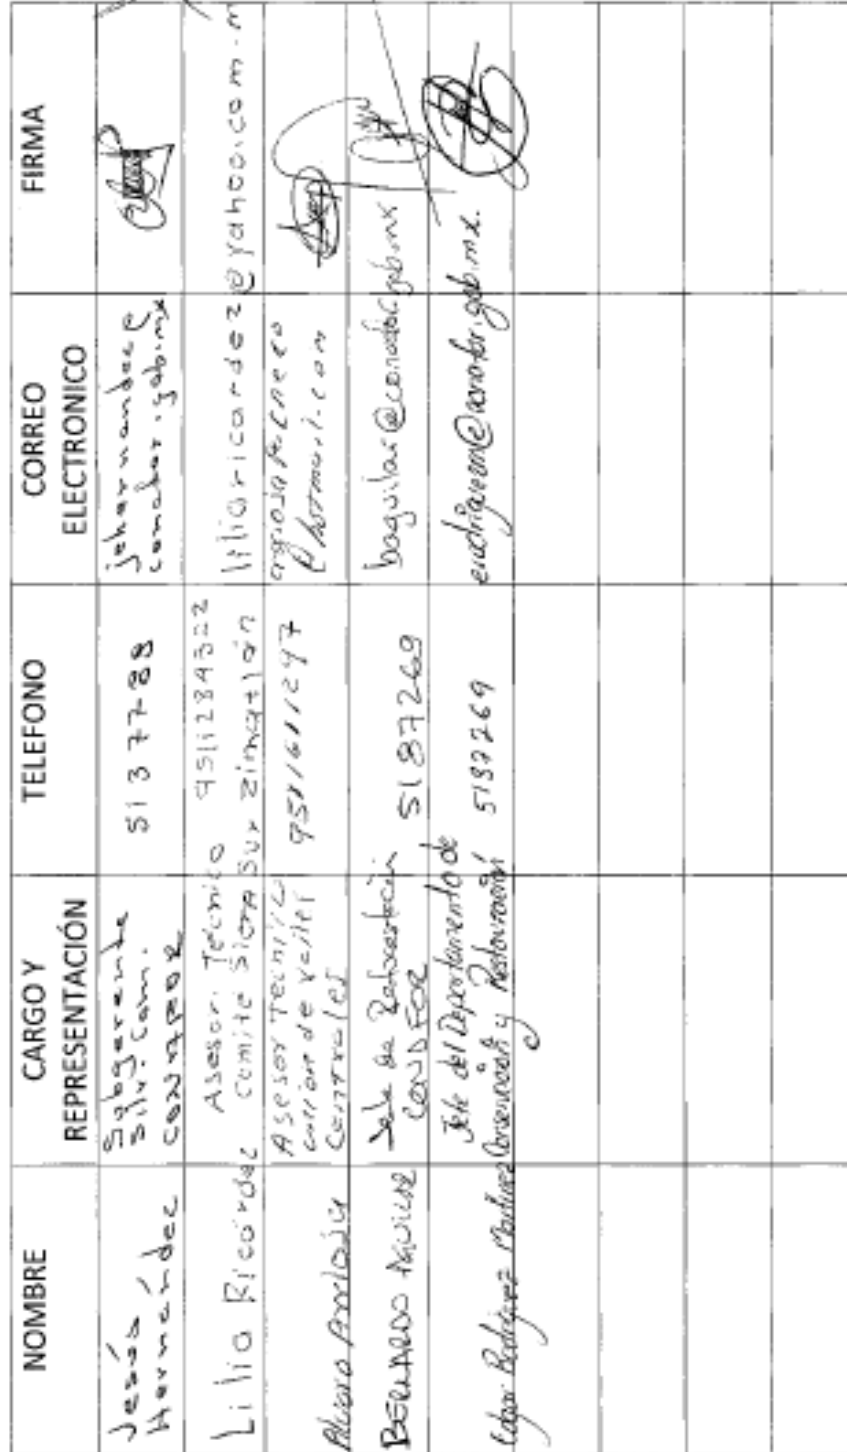 NOMBRE
CARGO Y
REPRESENTACIÓN
TELEFONO
CORREO
ELECTRONICO
FIRMA
Jesús
Hernández
Subgerente
Silv. Com.
CONAFOR
5137788
jehernandez@
conafor.gob.mx
Lilia Ricárdez
Asesor Técnico
Comité Sierra Sur Zimatlán
9511234322
liliaricardez@yahoo.com.m
Alvaro Arriaja
Asesor Tecnico
Union de Valles
Centrales
9581611297
@hotmail.com
BERNARDO AGUILAR
Jefe de Reforestación
CONAFOR
5187269
baguilar@conafor.gob.mx
Edgar Rodríguez Martínez
Jefe del Departamento de
Conservación y Restauración
5187269
@conafor.gob.mx.